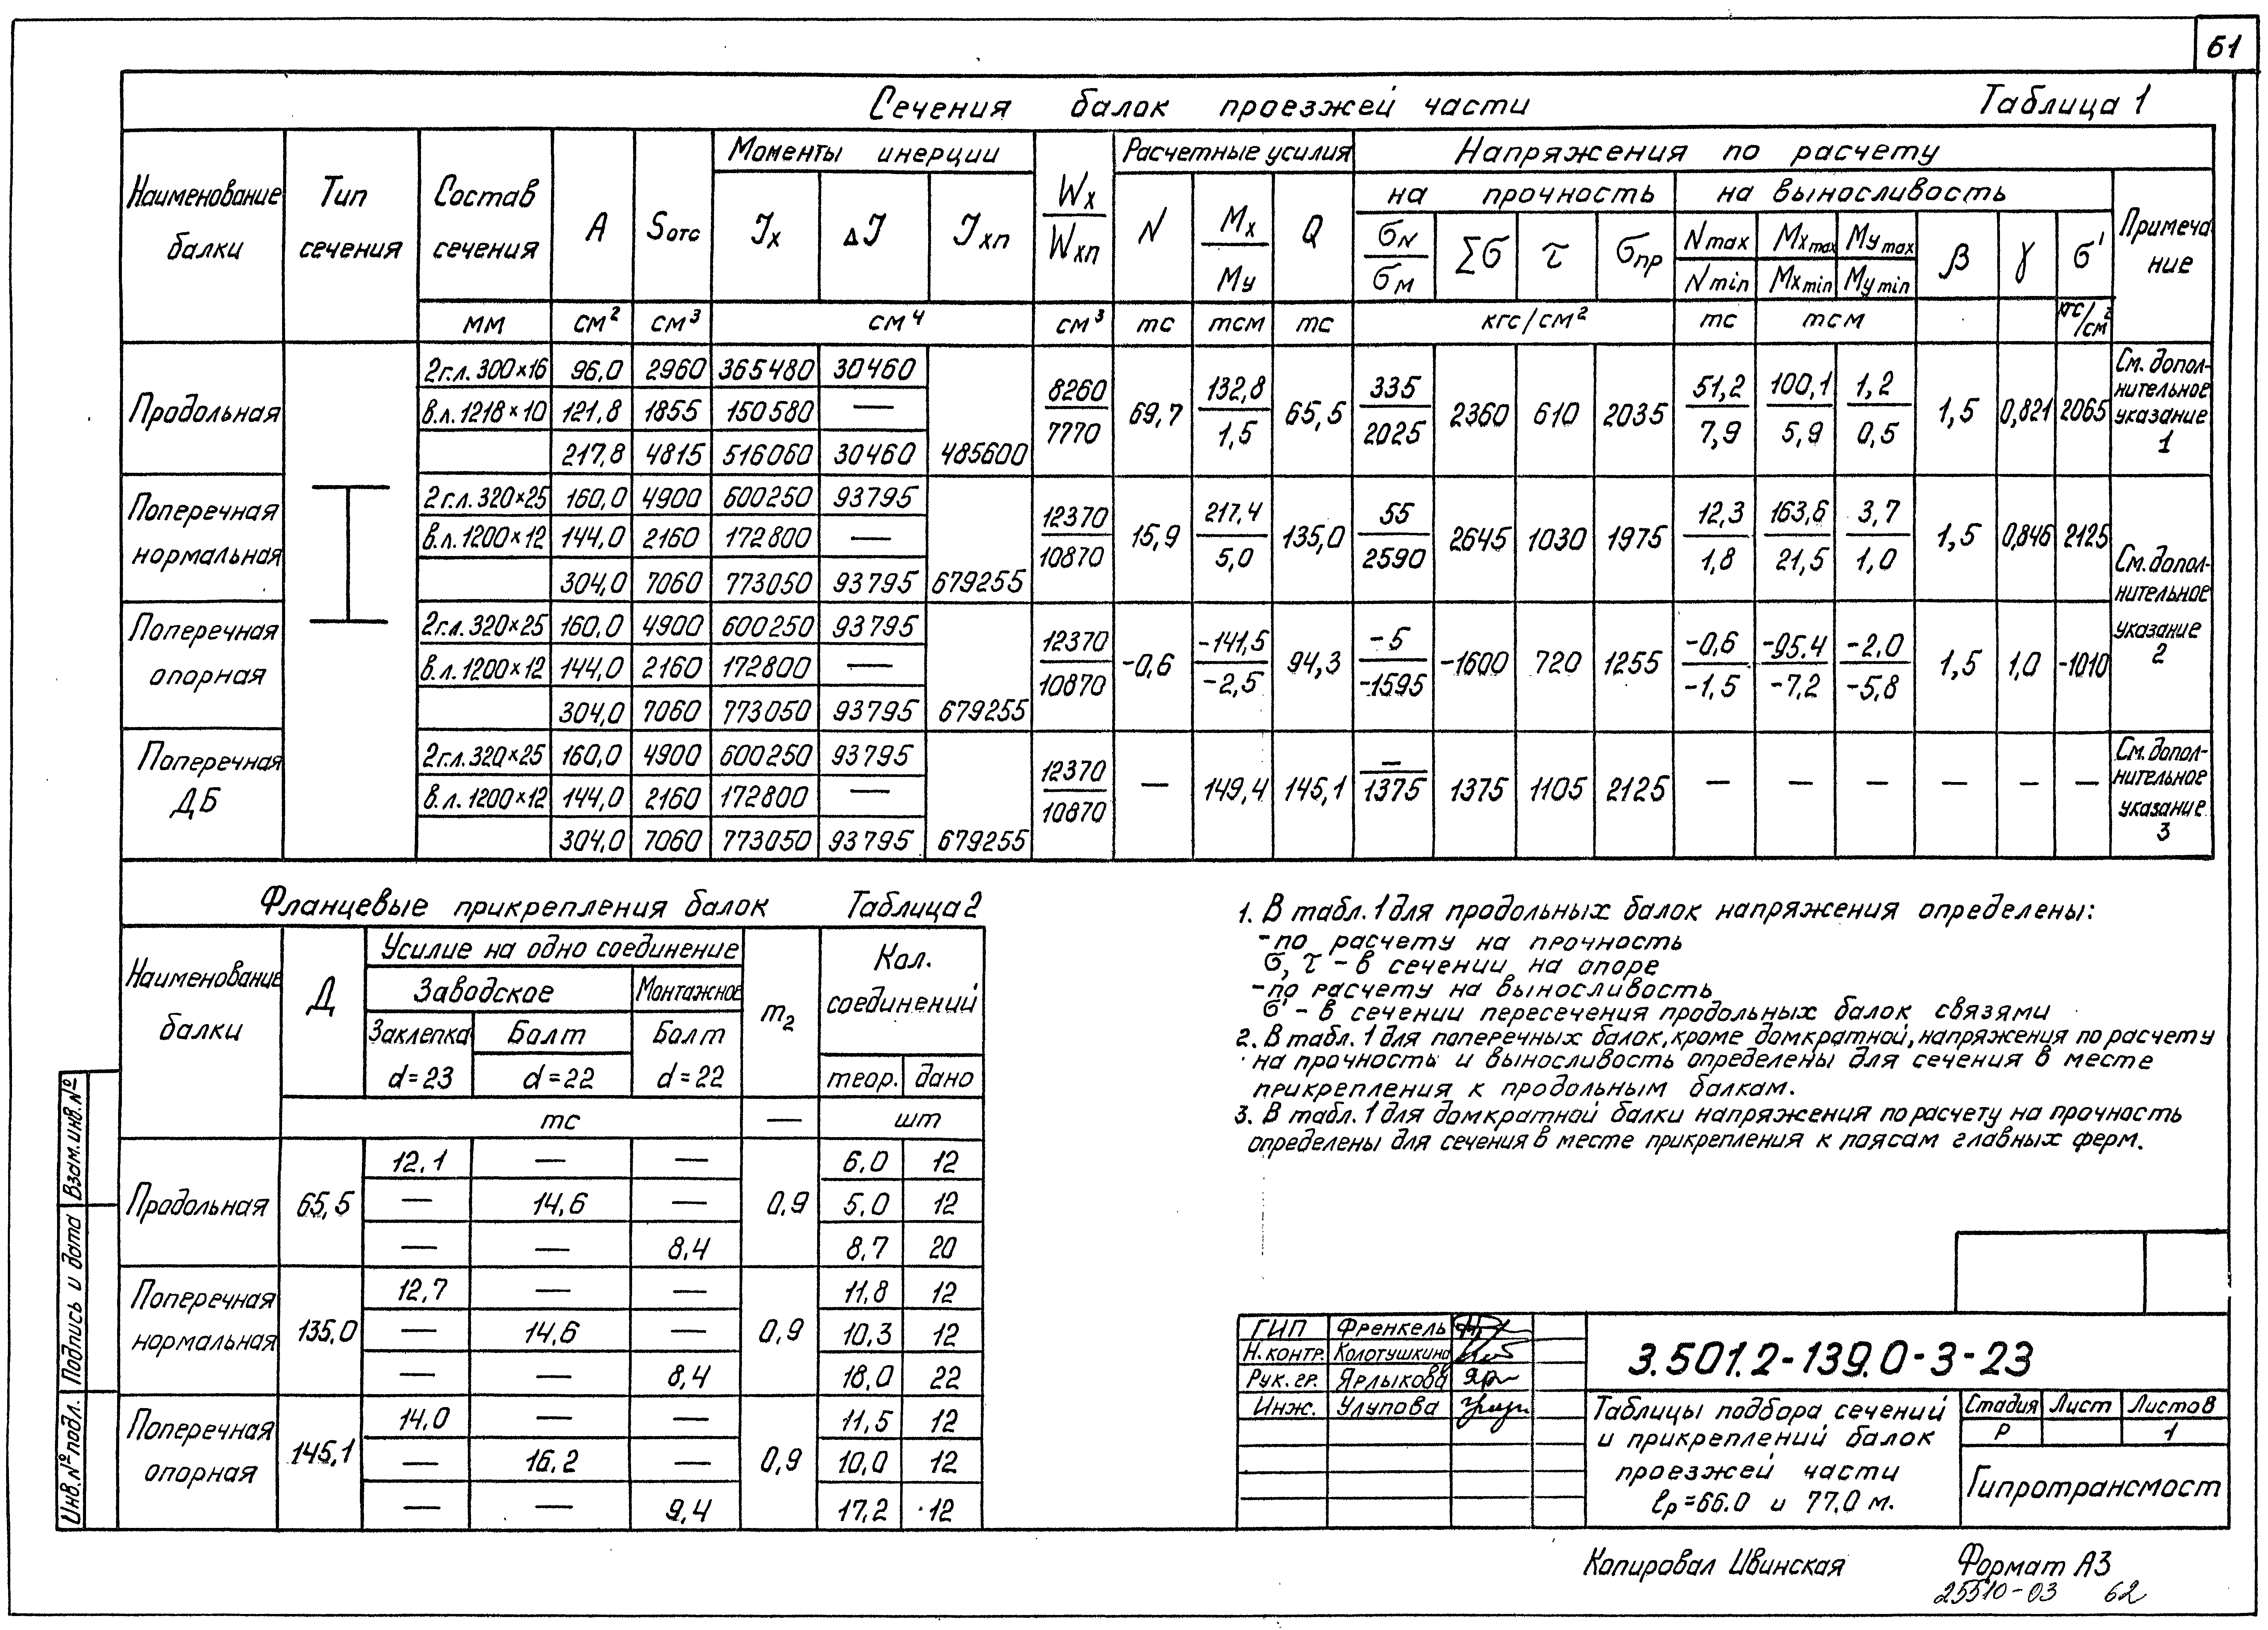 61
Сечения балок проезжей части Таблица 1
Наименование балки | Тип сечения | Состав сечения | A | Sотс | Моменты инерции | Wx / Wxп | Расчетные усилия | Напряжения по расчету | Примечание
Jx | ΔJ | Jxп | N | Mx / My | Q | на прочность | на выносливость
σN / σM | Σσ | τ | σпр | Nmax / Nmin | Mxmax / Mxmin | Mymax / Mymin | β | γ | σ'
мм | см² | см³ | см⁴ | см³ | тс | тсм | тс | кгс/см² | тс | тсм | кгс/см²
Продольная | 2г.л. 300×16 | 96,0 | 2960 | 365480 | 30460
в.л. 1218×10 | 121,8 | 1855 | 150580 | — | 8260 / 7770 | 69,7 | 132,8 / 1,5 | 65,5 | 335 / 2025 | 2360 | 610 | 2035 | 51,2 / 7,9 | 100,1 / 5,9 | 1,2 / 0,5 | 1,5 | 0,821 | 2065 | См. дополнительное указание 1
217,8 | 4815 | 516060 | 30460 | 485600
Поперечная нормальная | 2г.л. 320×25 | 160,0 | 4900 | 600250 | 93795
в.л. 1200×12 | 144,0 | 2160 | 172800 | — | 12370 / 10870 | 15,9 | 217,4 / 5,0 | 135,0 | 55 / 2590 | 2645 | 1030 | 1975 | 12,3 / 1,8 | 163,6 / 21,5 | 3,7 / 1,0 | 1,5 | 0,846 | 2125 | См. дополнительное указание 2
304,0 | 7060 | 773050 | 93795 | 679255
Поперечная опорная | 2г.л. 320×25 | 160,0 | 4900 | 600250 | 93795
в.л. 1200×12 | 144,0 | 2160 | 172800 | — | 12370 / 10870 | -0,6 | -141,5 / -2,5 | 94,3 | -5 / -1595 | -1600 | 720 | 1255 | -0,6 / -1,5 | -95.4 / -7,2 | -2.0 / -5,8 | 1,5 | 1,0 | -1010
304,0 | 7060 | 773050 | 93795 | 679255
Поперечная ДБ | 2г.л. 320×25 | 160,0 | 4900 | 600250 | 93795
в.л. 1200×12 | 144,0 | 2160 | 172800 | — | 12370 / 10870 | — | 149,4 | 145,1 | — / 1375 | 1375 | 1105 | 2125 | — | — | — | — | — | — | См. дополнительное указание 3
304,0 | 7060 | 773050 | 93795 | 679255
Фланцевые прикрепления балок Таблица 2
Наименование балки | Д | Усилие на одно соединение | m₂ | Кол. соединений
Заводское | Монтажное
Заклепка d=23 | Болт d=22 | Болт d=22 | теор. | дано
тс | — | шт
Продольная | 65,5 | 12.1 | — | — | 0,9 | 6.0 | 12
— | 14,6 | — | 5.0 | 12
— | — | 8,4 | 8,7 | 20
Поперечная нормальная | 135,0 | 12,7 | — | — | 0,9 | 11,8 | 12
— | 14,6 | — | 10,3 | 12
— | — | 8,4 | 18,0 | 22
Поперечная опорная | 145,1 | 14,0 | — | — | 0,9 | 11,5 | 12
— | 16,2 | — | 10,0 | 12
— | — | 9,4 | 17,2 | 12
1. В табл. 1 для продольных балок напряжения определены:
-по расчету на прочность
σ, τ - в сечении на опоре
-по расчету на выносливость
σ' - в сечении пересечения продольных балок связями
2. В табл. 1 для поперечных балок, кроме домкратной, напряжения по расчету
на прочность и выносливость определены для сечения в месте
прикрепления к продольным балкам.
3. В табл. 1 для домкратной балки напряжения по расчету на прочность
определены для сечения в месте прикрепления к поясам главных ферм.
Взам. инв. №
Подпись и дата
Инв. № подл.
ГИП Френкель
Н. контр. Колотушкина
Рук. гр. Ярлыкова
Инж. Улупова
3.501.2-139.0-3-23
Таблицы подбора сечений
и прикреплений балок
проезжей части
lр=66.0 и 77.0 м.
Стадия Лист Листов
Р 1
Гипротрансмост
Копировал Ивинская Формат А3
25510-03 62